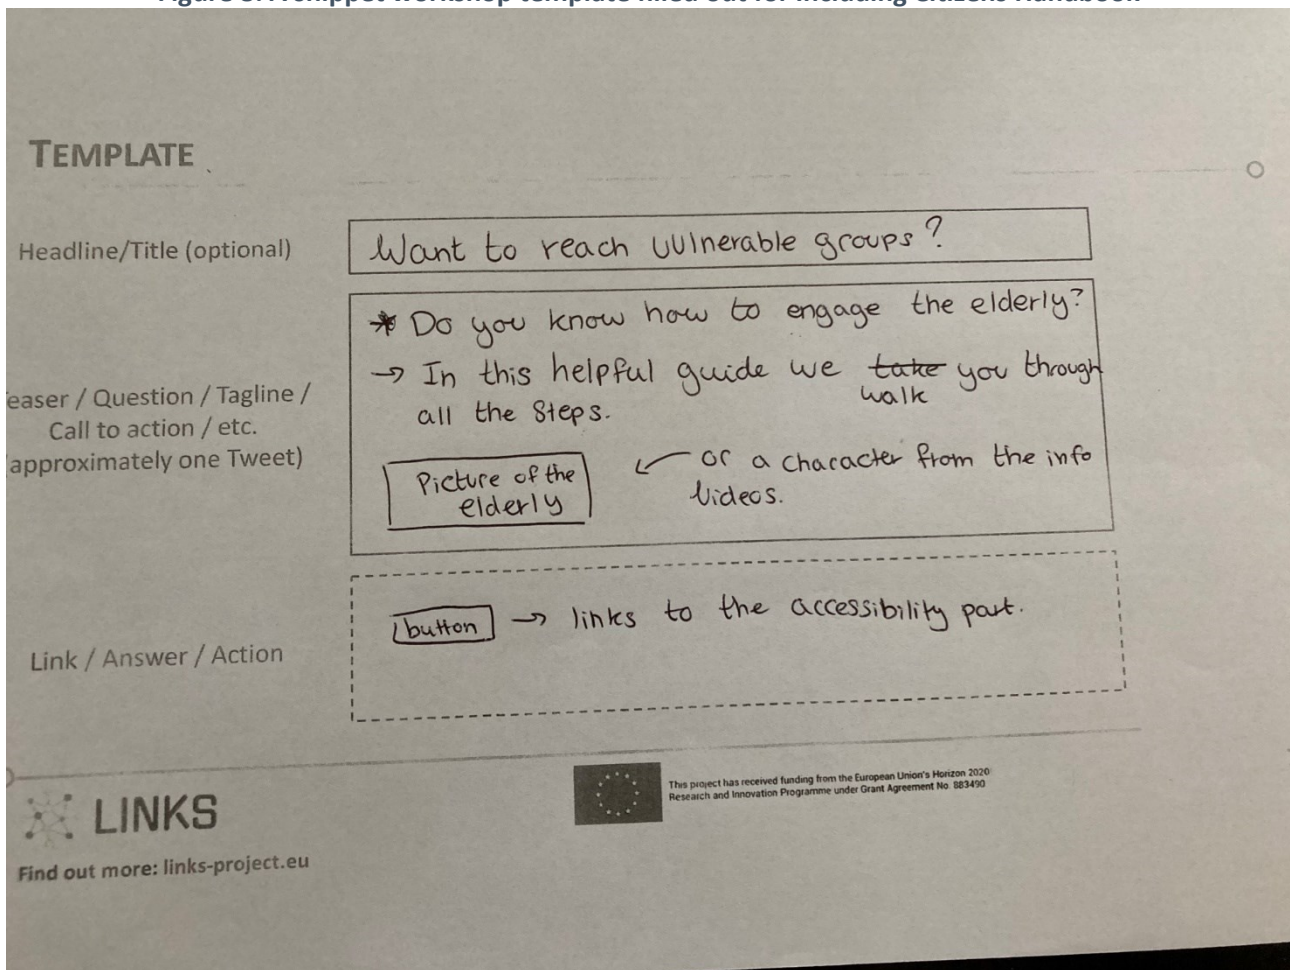 TEMPLATE
Headline/Title (optional)
Want to reach vulnerable groups?
easer / Question / Tagline /
Call to action / etc.
approximately one Tweet)
* Do you know how to engage the elderly?
→ In this helpful guide we ~~take~~ you through
walk
all the steps.
Picture of the
elderly
← or a character from the info
videos.
Link / Answer / Action
button → links to the accessibility part.
LINKS
Find out more: links-project.eu
This project has received funding from the European Union's Horizon 2020
Research and Innovation Programme under Grant Agreement No 883490